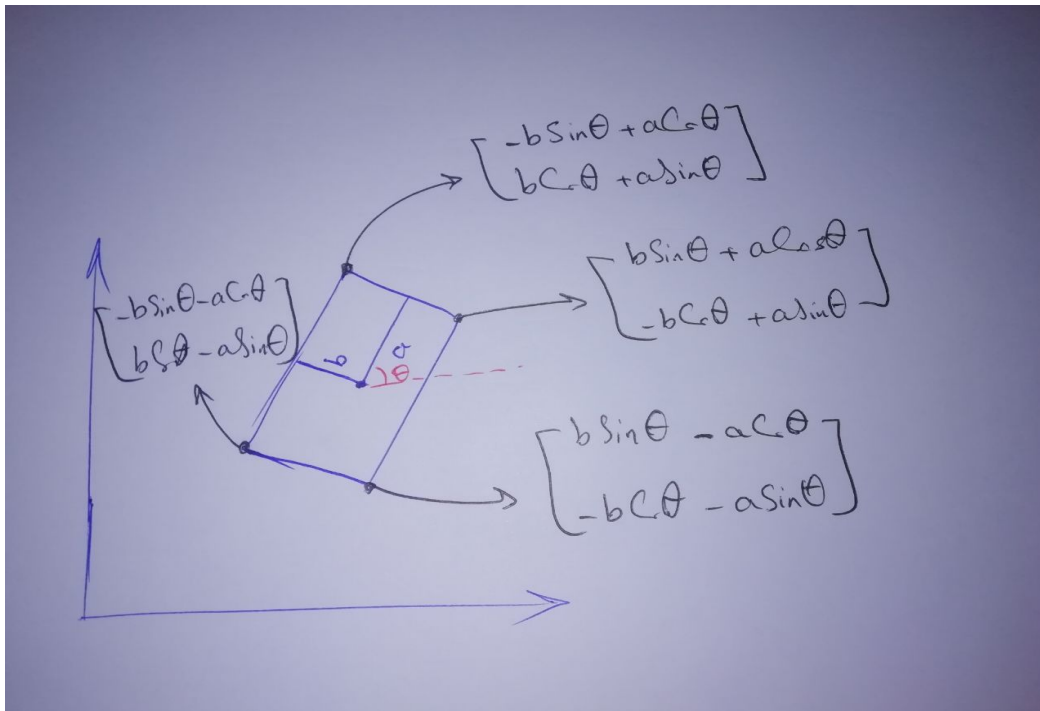 -b Sinθ + a C θ
b C θ + a Sinθ
b Sinθ + a Cosθ
-b C θ + a Sinθ
-b Sinθ - a C θ
b C θ - a Sinθ
b
a
θ
b Sinθ - a C θ
-b C θ - a Sinθ